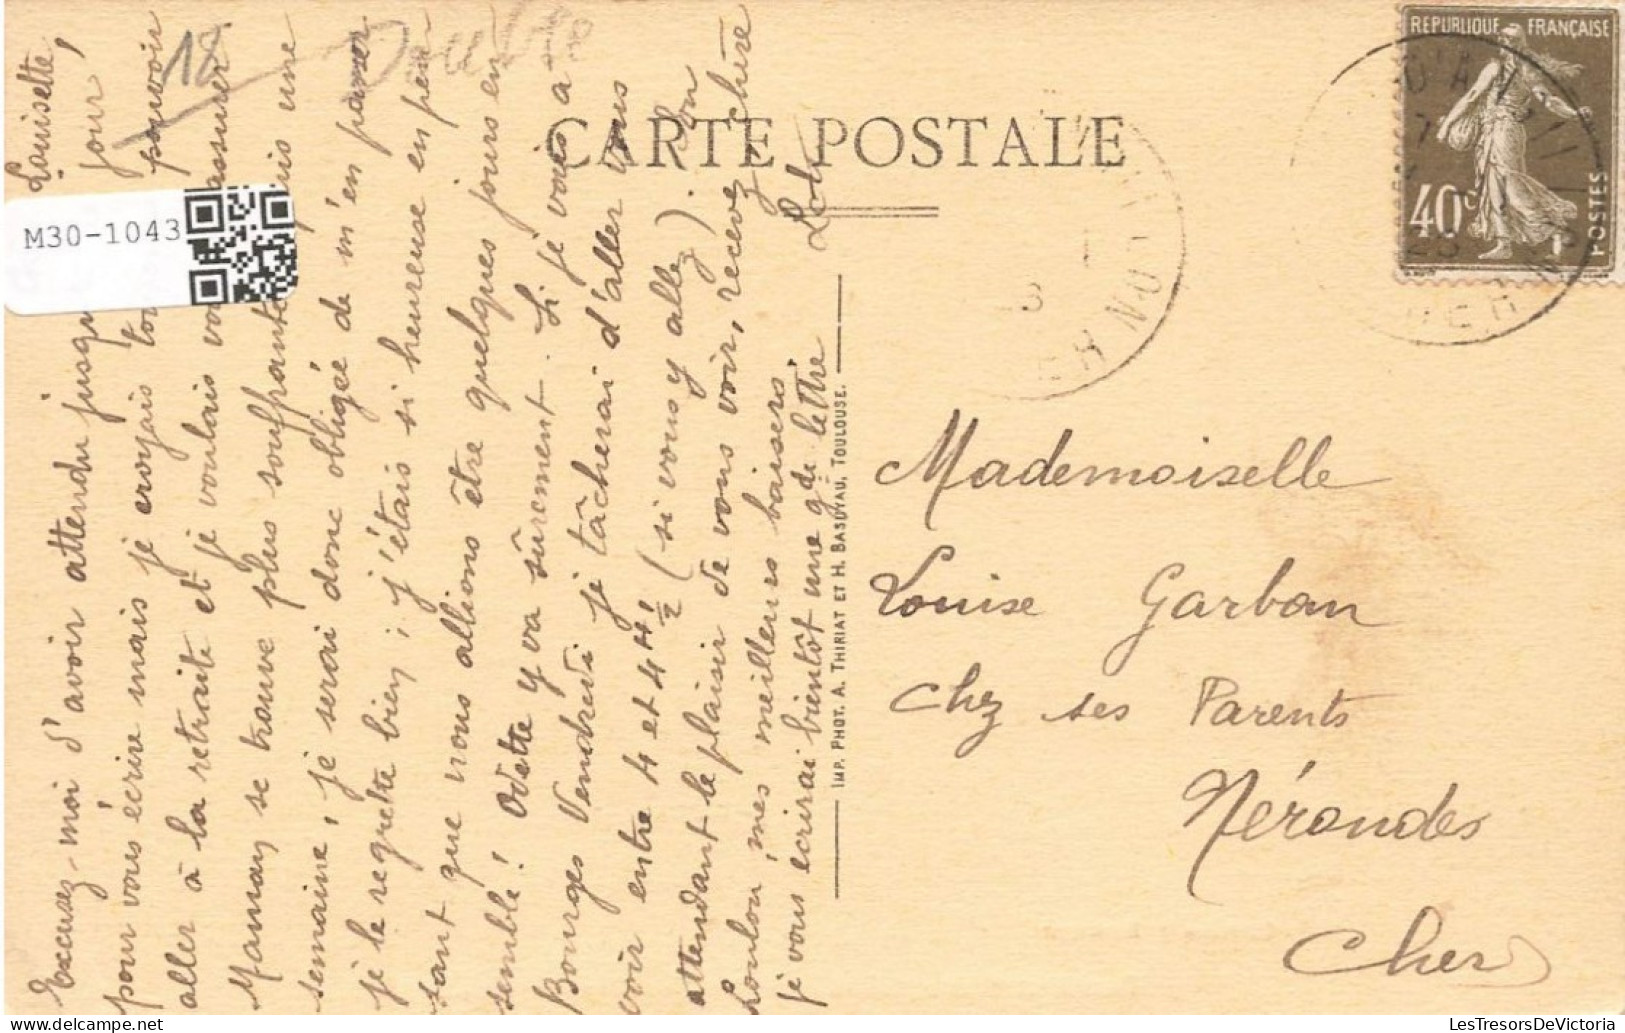 CARTE POSTALE
Louisette,
Excusez-moi d'avoir attendu jusqu
jour,
pour vous écrire mais je croyais tou pouvoir
aller à la retraite et je voulais vo assurer
Maman se trouve plus souffrante puis une
semaine, je serai donc obligée de m'en passer
je le regrette bien ; j'étais si heureuse en pen
sant que nous allions être quelques jours en
semble ! Odette y va sûrement. Si je vais à
Bourges Vendredi je tâcherai d'aller vous
voir entre 4 et 4 H ½ (si vous y allez). En
attendant le plaisir de vous voir, recevez, chère
Loulou, mes meilleurs baisers
je vous écrirai bientôt une gde lettre
18
M30-1043
IMP. PHOT. A. THIRIAT ET H. BASUYAU, TOULOUSE.
REPUBLIQUE FRANÇAISE
40c
POSTES
Mademoiselle
Louise Garban
chez ses Parents
Nérondes
Cher
LesTresorsDeVictoria
delcampe.net